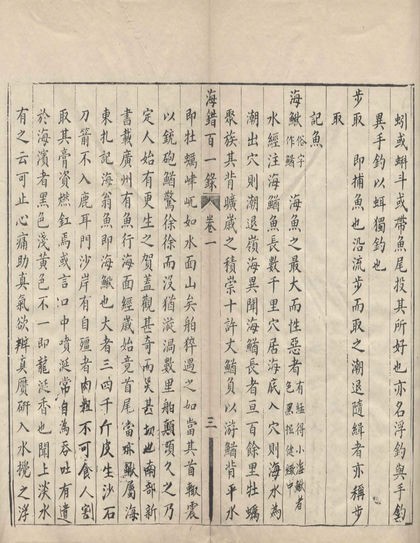 蚓或蝌斗或帶魚尾投其所好也亦名浮釣與手釣
異手釣以蝦獨釣也
步取 即捕魚也沿流步而取之潮退隨緝者亦稱步
取
記魚
海鰍俗字作鰌 海魚之最大而性惡者
水經注海鰌魚長數千里穴居海底入穴則海水為
潮出穴則潮退嶺海異聞海鰌長者亘百餘里牡蠣
聚族其背曠歲之積崇十許丈鰌負以游鰌背平水
海錯百一錄 卷一 三
即牡蠣峍屼如水面山矣舶猝遇之如當其首輙震
以銃砲鰌驚徐徐而没猶漩渦數里舶顛頓久之乃
定人始有更生之賀蓋觀甚奇而災甚切也南部新
書載廣州有魚行海面經歲始竟首尾當球鰍屬海
東札記海翁魚即海鰍也大者三四千斤皮生沙石
刀箭不入鹿耳門沙岸有自殭者肉粗不可食人割
取其膏資燃釭焉或言口中噴涎常自為吞吐有遺
於海濱者黑色淺黃色不一即龍涎香也聞上淡水
有之云可止心痛助真氣欲辨真贋研入水攪之浮